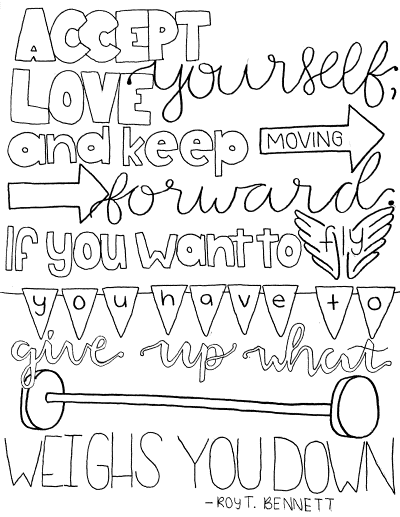 ACCEPT
LOVE yourself,
and keep MOVING
forward.
If you want to fly
you have to
give up what
WEIGHS YOU DOWN
-ROY T. BENNETT